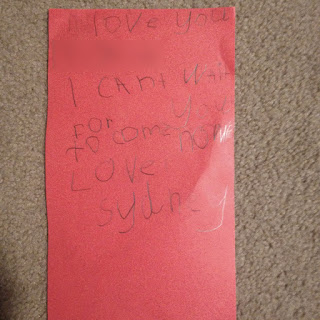 I love you
I cant wait
for you
to come home
Love
Sydney